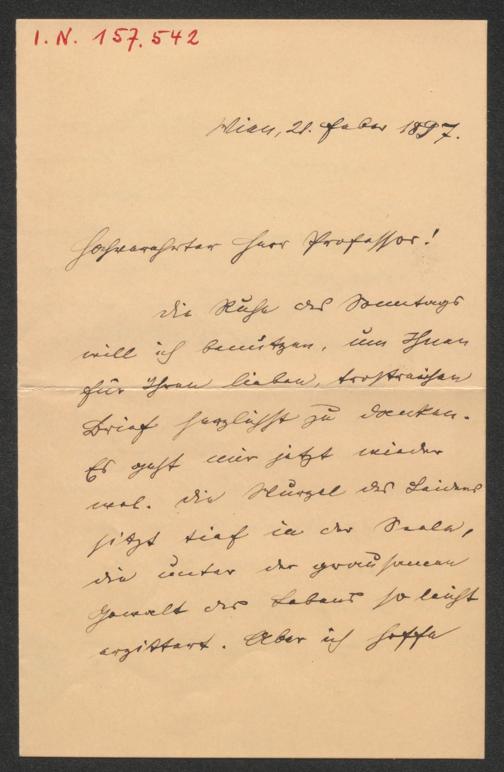 I.N. 157.542
Wien, 21. Feber 1897.
Hochverehrter Herr Professor!
Die Ruhe des Sonntags
will ich benützen, um Ihnen
für Ihren lieben, trostreichen
Brief herzlichst zu danken.
Es geht mir jetzt wieder
wol. Die Wurzel des Leidens
sitzt tief in der Seele,
die unter der grausamen
Gewalt des Lebens so leicht
erzittert. Aber ich hoffe